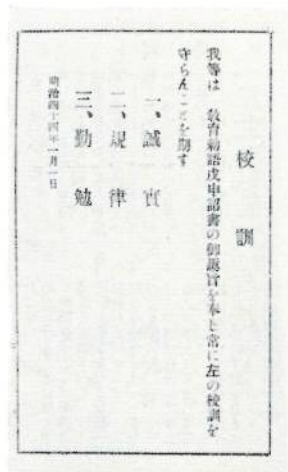 校訓
我等は 教育勅語戊申詔書の御趣旨を奉し常に左の校訓を
守らんことを期す
一、誠實
二、規律
三、勤勉
明治四十四年一月一日